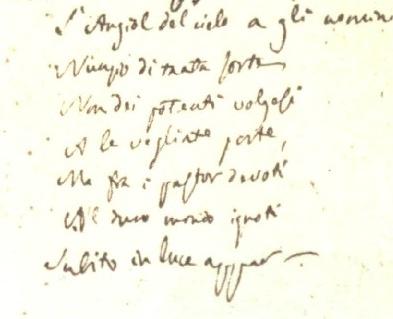 L'Angiol del cielo a gli uomini
Nunzio di tanta sorte
Non dei potenti volgesi
A le vegliate porte,
Ma fra i pastor devoti
Al duro mondo ignoti
Subito in luce appar —